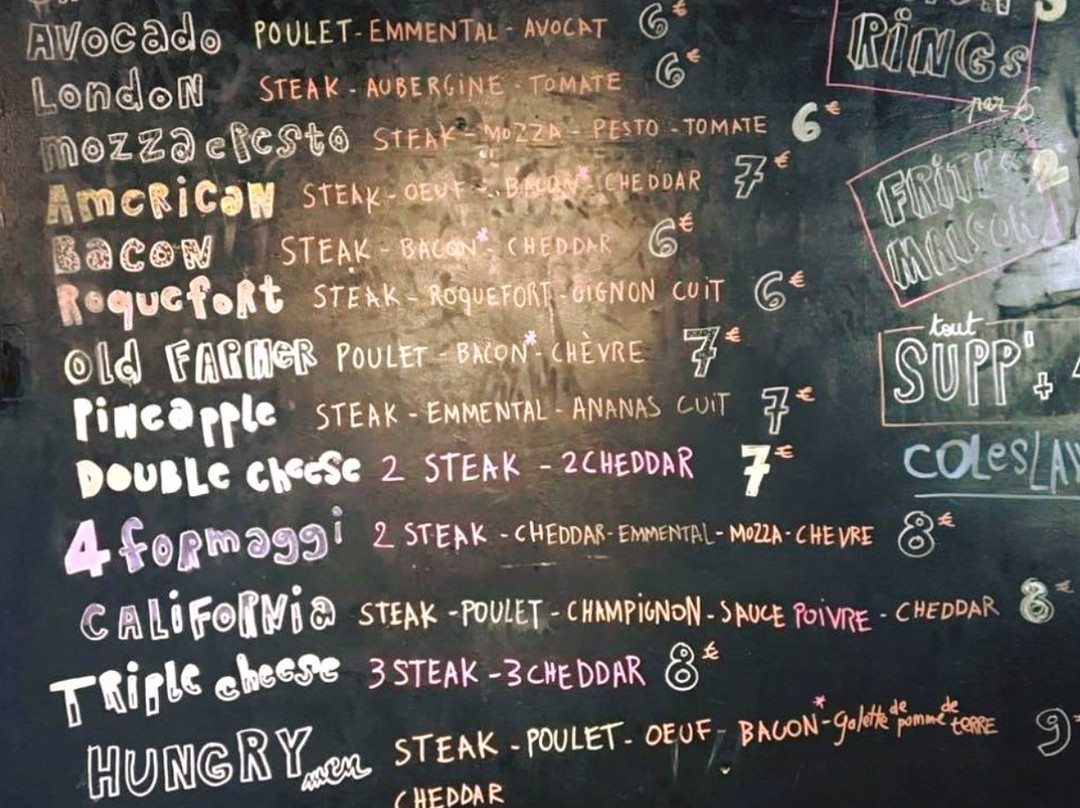 AVOCADO POULET - EMMENTAL - AVOCAT 6€
LONDON STEAK - AUBERGINE - TOMATE 6€
mozza e Pesto STEAK - MOZZA - PESTO - TOMATE 6€
AMERICAN STEAK - OEUF - BACON* - CHEDDAR 7€
BACON STEAK - BACON* - CHEDDAR 6€
Roquefort STEAK - ROQUEFORT - OIGNON CUIT 6€
OLD FARMER POULET - BACON* - CHÈVRE 7€
Pineapple STEAK - EMMENTAL - ANANAS CUIT 7€
DOUBLE cheese 2 STEAK - 2 CHEDDAR 7€
4 formaggi 2 STEAK - CHEDDAR - EMMENTAL - MOZZA - CHEVRE 8€
CALIFORNIA STEAK - POULET - CHAMPIGNON - SAUCE POIVRE - CHEDDAR 8€
TRIPLE cheese 3 STEAK - 3 CHEDDAR 8€
HUNGRY men STEAK - POULET - OEUF - BACON* - galette de pomme de terre 9
CHEDDAR
RINGS
par 6
FRITES 2
MAISON
tout
SUPP' +
COLESLAW